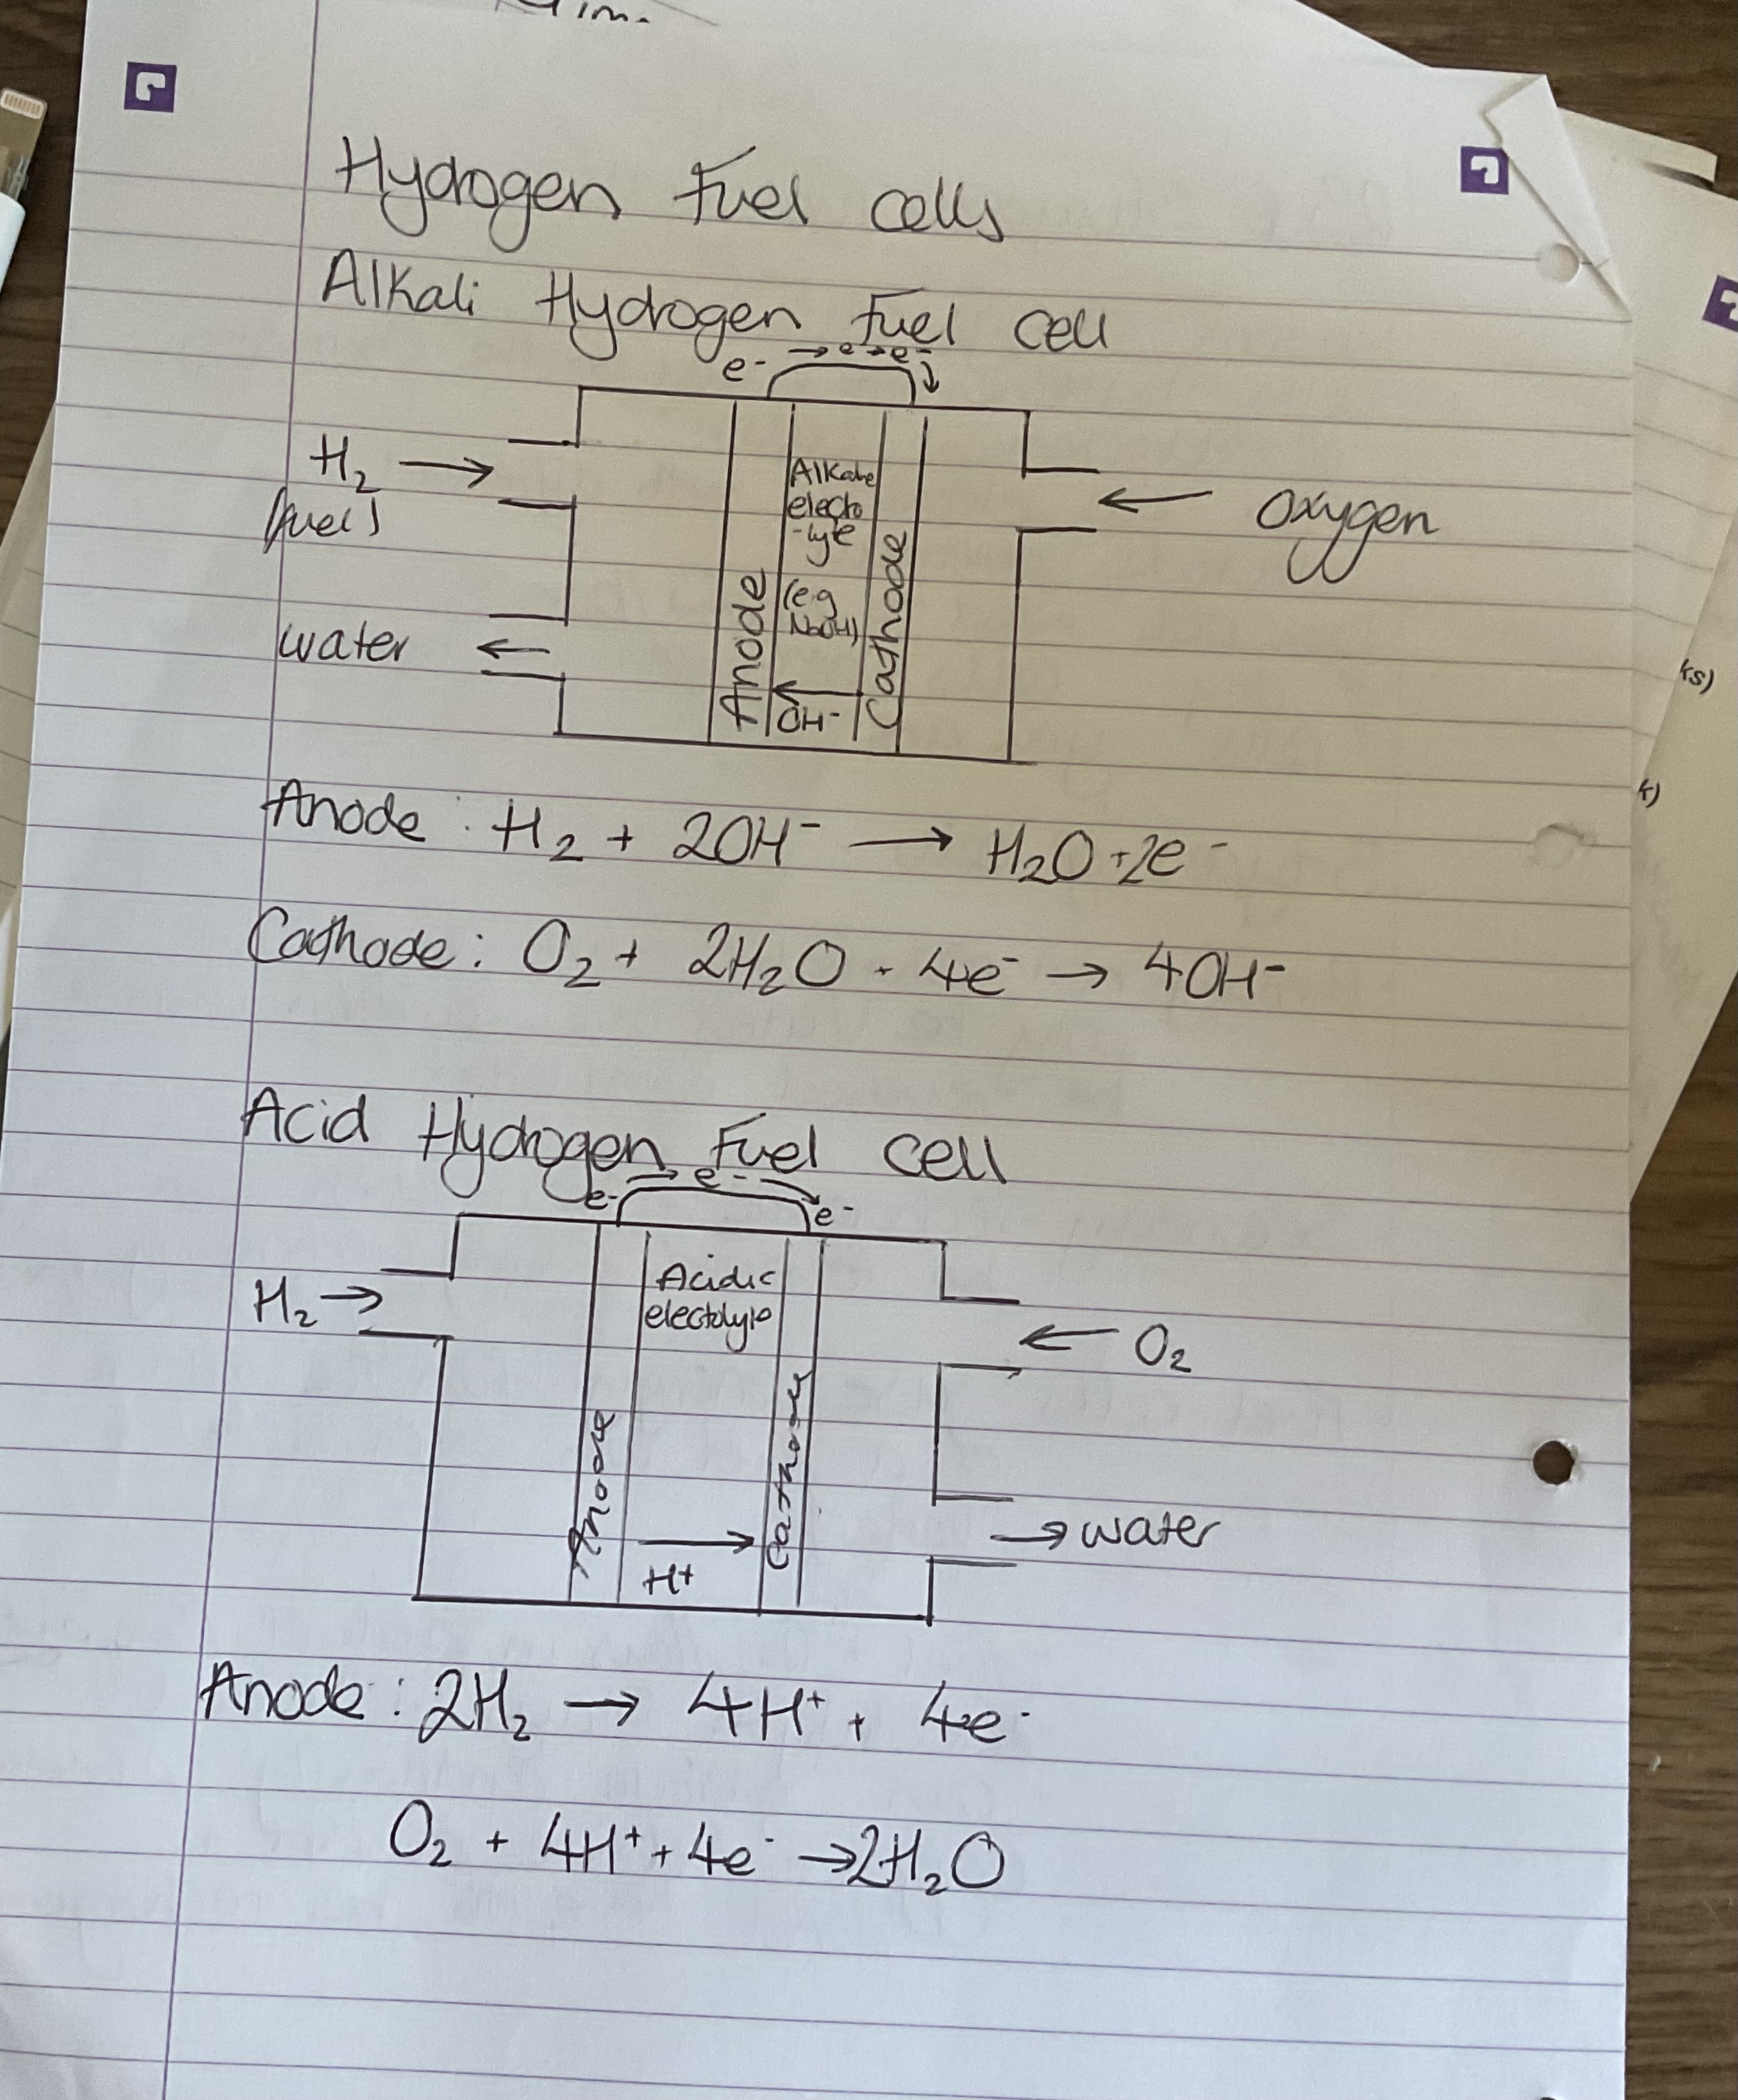 Hydrogen Fuel cells
Alkali Hydrogen Fuel Cell
e⁻ → e⁻ → e⁻
H₂ →
(fuel)
Alkaline
electo
-lyte
(e.g
NaOH)
← Oxygen
water ←
Anode
Cathode
OH⁻
Anode : H₂ + 2OH⁻ → H₂O + 2e⁻
Cathode : O₂ + 2H₂O + 4e⁻ → 4OH⁻
Acid Hydrogen Fuel Cell
e⁻ → e⁻ → e⁻
H₂ →
Acidic
electolyte
← O₂
Anode
Cathode
→ water
H⁺
Anode : 2H₂ → 4H⁺ + 4e⁻
O₂ + 4H⁺ + 4e⁻ → 2H₂O
ks)
k)